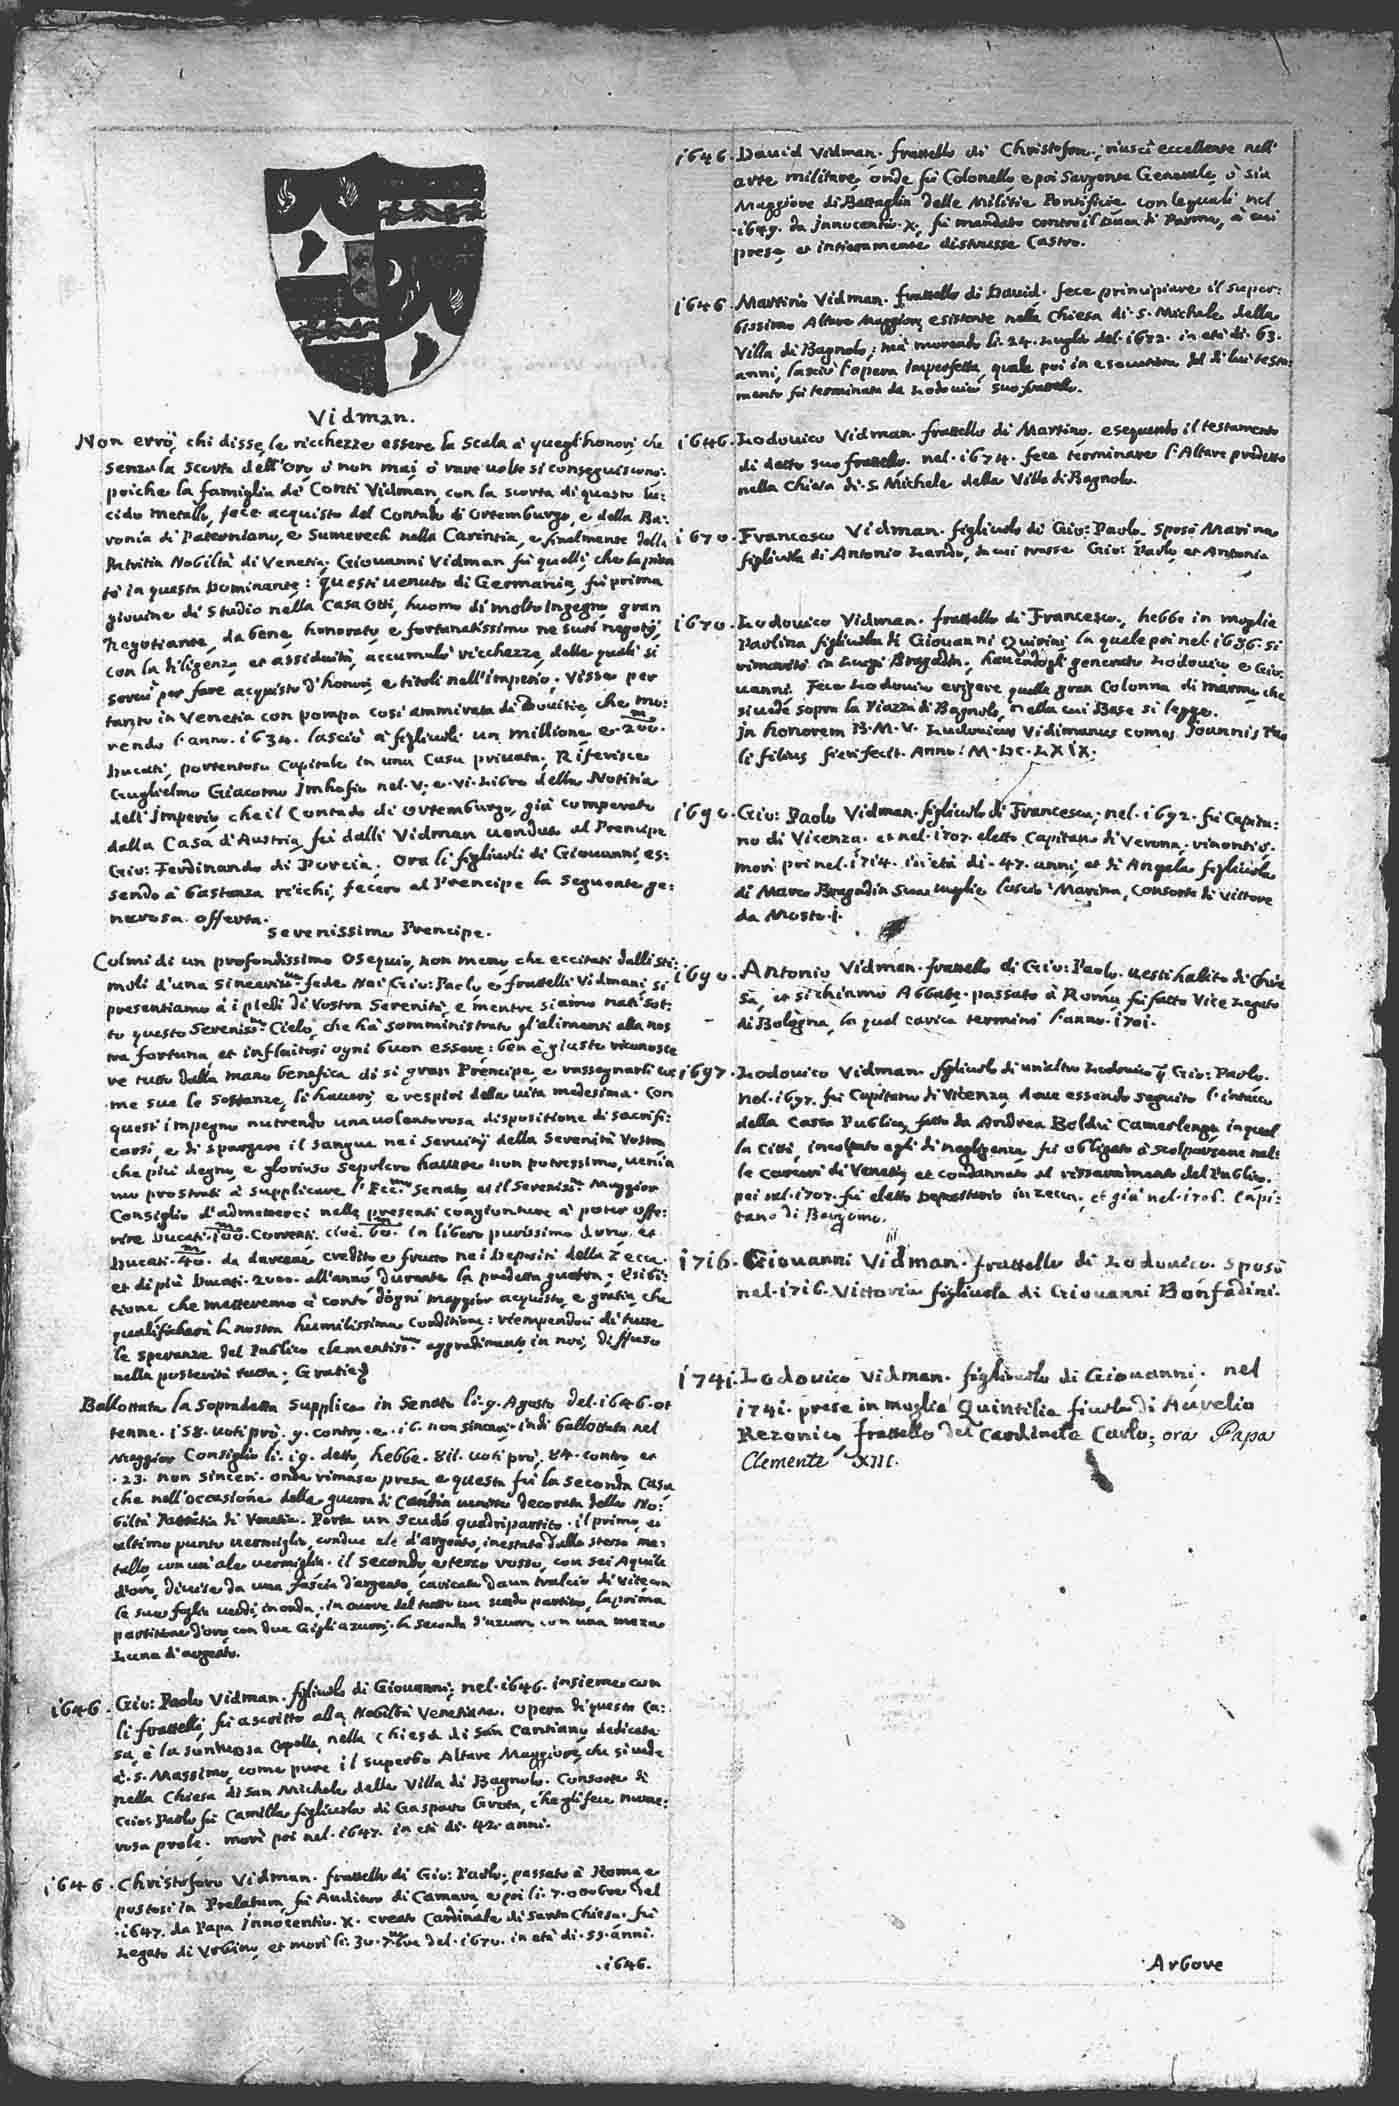 Vidman.
Non errò, chi disse le ricchezze essere la scala à quegl'honori, che
senza la scorta dell'oro ò non mai, ò rare volte si conseguiscono:
poiche la famiglia de Conti Vidman, con la scorta di questo lu:
cido metallo, fece acquisto del Contado di Ortemburgo, e della Ba:
ronia di Paterniano, e Sumerech nella Carintia, e finalmente della
Patritia Nobiltà di Venetia; Giovanni Vidman fù quelli, che la pian
tò in questa Dominante: questi venuto di Germania, fù prima
giovine di Studio nella Casa Otti, huomo di molto Ingegno gran
Negotiante, da bene, honorato e fortunatissimo ne suoi negotij,
con la diligenza et assiduità, accumulò ricchezze, delle quali si
servì per fare acquisto d'honori, e titoli nell'imperio; visse per
tanto in Venetia con pompa cosi ammirata di Dovitie, che mo:
rendo l'anno .1634. lasciò à figlivoli un millione e .200.m
Ducati, portentoso Capitale in una Casa privata; Riferisce
Guglielmo Giacomo Imhofio nel .V. e .VI. Libro della Notitia
dell'Imperio, che il Contado di Ortemburgo, già comperato
dalla Casa d'Austria, fù dalli Vidman venduto al Prencipe
Gio: Ferdinando di Porcia. Ora li figlivoli di Giovanni, es:
sendo à bastanza ricchi, fecero al Prencipe la seguente ge:
nerosa offerta.
Serenissimo Prencipe.
Colmi di un profondissimo osequio, non meno che eccitati dalli sti:
moli d'una sinceriss.ma fede Noi Gio: Paolo e fratelli Vidmani, si
presentiamo à i piedi di Vostra Serenità, e mentre siamo nati sot:
to questo Sereniss.mo Cielo, che hà somministrato gl'alimenti alla nos
tra fortuna, et influitosi ogni buon essere: ben è giusto riconosce
re tutto dalla mano benefica di si gran Prencipe, e rassegnarli co:
me sue le sostanze, li haveri, e respiri della vita medesima. Con
questi impegno nutrendo una volontorosa dispositione di sacrifi:
carsi, e di spargere il sangue ne i servitij della Serenità Vostra
che più degno, e glorioso sepolcro havere non potressimo, venia
mo prostrati à supplicare l'Ecc.mo Senato, et il Sereniss.mo Maggior
Consiglio d'admetterci nelle presenti congionture à poter offe:
rire Ducati .100.m Correnti, cioè .60.m in libero purissimo dono, et
Ducati .40.m da darcene credito e frutto ne i Depositi della Zecca.
et di più Ducati .2000. all'anno durante la predetta guerra; Esibi:
tione, che metteremo à conto d'ogni maggior acquisto, e gratia, che
qualificharà la nostra humilissima Conditione: riempendosi di tutte
le speranze del Publico clementiss.mo aggradimento in noi, diffuso
nella posterità tutta; Gratie.
Ballottata la Sopradetta Supplica in Senato li .9. Agosto del .1646. ot
tenne .158. voti prò .9. contro, e .16. non sinceri. indi ballottata nel
Maggior Consiglio li .19. detto, hebbe .811. voti prò, .84. contro, et
.23. non sinceri. onde rimase presa, e questa fù la seconda Casa
che nell'occasione della guerra di Candia venisse decorata della No:
biltà Patritia di Venetia. Porta un Scudo quadripartito. il primo, et
ultimo punto vermiglio, con due ale d'argento, inestato dallo stesso me:
tallo, con un'ale vermiglia. il secondo, e terzo rosso, con sei Aquile
d'oro, divise da una fascia d'argento, caricata da un tralcio di vite con
le sue foglie verdi, in onda. in cuore del tutto un scudo partito, la prima
partitione d'oro, con due Gigli azurri. la seconda d'azurro con una meza
Luna d'argento.
1646. Gio: Paolo Vidman. figlivolo di Giovanni; nel .1646. insieme con
li fratelli, fù ascritto alla Nobiltà Venetiana. opera di questa Ca:
sa, è la sontuosa Capella, nella Chiesa di San Cantiano, dedicata
à .S. Massimo, come pure il superbo Altare Maggiore, che si vede
nella Chiesa di San Michele della Villa di Bagnolo. Consorte di
Gio: Paolo fù Camilla figlivola di Gasparo Grotta, che gli fece nume:
rosa prole. morì poi nel .1647. in età di .42. anni.
1646. Christoforo Vidman. fratello di Gio: Paolo, passato à Roma, e
postosi in Prelatura, fù Auditor di Camara, e poi li .7. ottobre del
.1647. da Papa Innocentio .X. creato Cardinale di Santa Chiesa. fù
Legato di Urbino, et morì li .30. 7.mbre del .1670. in età di .55. anni.
.1646.
1646. David Vidman. fratello di Christoforo; riuscì eccellente nell'
arte militare, onde fù Colonello e poi Sargente Generale, ò sia
Maggiore di Battaglia delle Militie Pontificie con le quali nel
.1649. da Innocentio .X. fù mandato contro il Duca di Parma, à cui
prese, et intieramente distrusse Castro.
1646. Martino Vidman. fratello di David. fece principiare il super:
bissimo Altare Maggiore, esistente nella Chiesa di .S. Michele della
Villa di Bagnolo; mà morendo li .24. Luglio del .1672. in età di .63.
anni, lasciò l'opera imperfetta, quale poi in esecutione del di lui testa:
mento fù terminata da Lodovico suo fratello.
1646. Lodovico Vidman. fratello di Martino. esequendo il testamento
di detto suo fratello. nel .1674. fece terminare l'Altare predetto
nella Chiesa di .S. Michele della Villa di Bagnolo.
1670. Francesco Vidman. figlivolo di Gio: Paolo. Sposò Marina
figlivola di Antonio Lando, da cui trasse Gio: Paolo, et Antonio
1670. Lodovico Vidman. fratello di Francesco, hebbe in moglie
Paolina figlivola di Giovanni Quirini, la quale poi nel .1686. si
rimaritò in Luigi Bragadin; havendogli generato Lodovico, e Gio:
vanni. Fece Lodovico erigere quella gran Colonna di marmo, che
si vede sopra la Piazza di Bagnolo, nella cui Base si legge.
In honorem B. M. V. Ludovicus Vidimanus comes Joannis Pau
li filius fieri fecit. Anno. M. DC. LXIX;
1690. Gio: Paolo Vidman. figlivolo di Francesco; nel .1692. fù Capita:
no di Vicenza. et nel .1707. eletto Capitano di Verona. rinontiò.
morì poi nel .1714. in età di .47. anni, et di Angela figlivola
di Marco Bragadin sua moglie lasciò Marina, Consorte di Vittore
da Mosto.
1690. Antonio Vidman. fratello di Gio: Paolo. vestì habito di Chie
sa, et si chiamò Abbate. passato à Roma, fù fatto Vice Legato
di Bologna, la qual carica terminò l'anno .1701.
1697. Lodovico Vidman. figlivolo di un'altro Lodovico q. Gio: Paolo.
nel .1697. fù Capitano di Vicenza, dove essendo seguito l'intacco
della Cassa Publica, fatto da Andrea Boldù Camerlengo in quel
la Città, incolpato egli di negligenza, fù obligato à scolparsene nel:
le carceri di Venetia, et condannato al rissarcimento del Publico.
poi nel .1707. fù eletto Depositario in Zecca, et già nel .1706. Capi:
tano di Bergomo.
1716. Giovanni Vidman. fratello di Lodovico. Sposò
nel .1716. Vittoria figlivola di Giovanni Bonfadini.
1741. Lodovico Vidman. figlivolo di Giovanni; nel
1741. prese in moglie Quintilia fiola di Aurelio
Rezonico, fratello del Cardinale Carlo; ora Papa
Clemente XIII.
Arbore